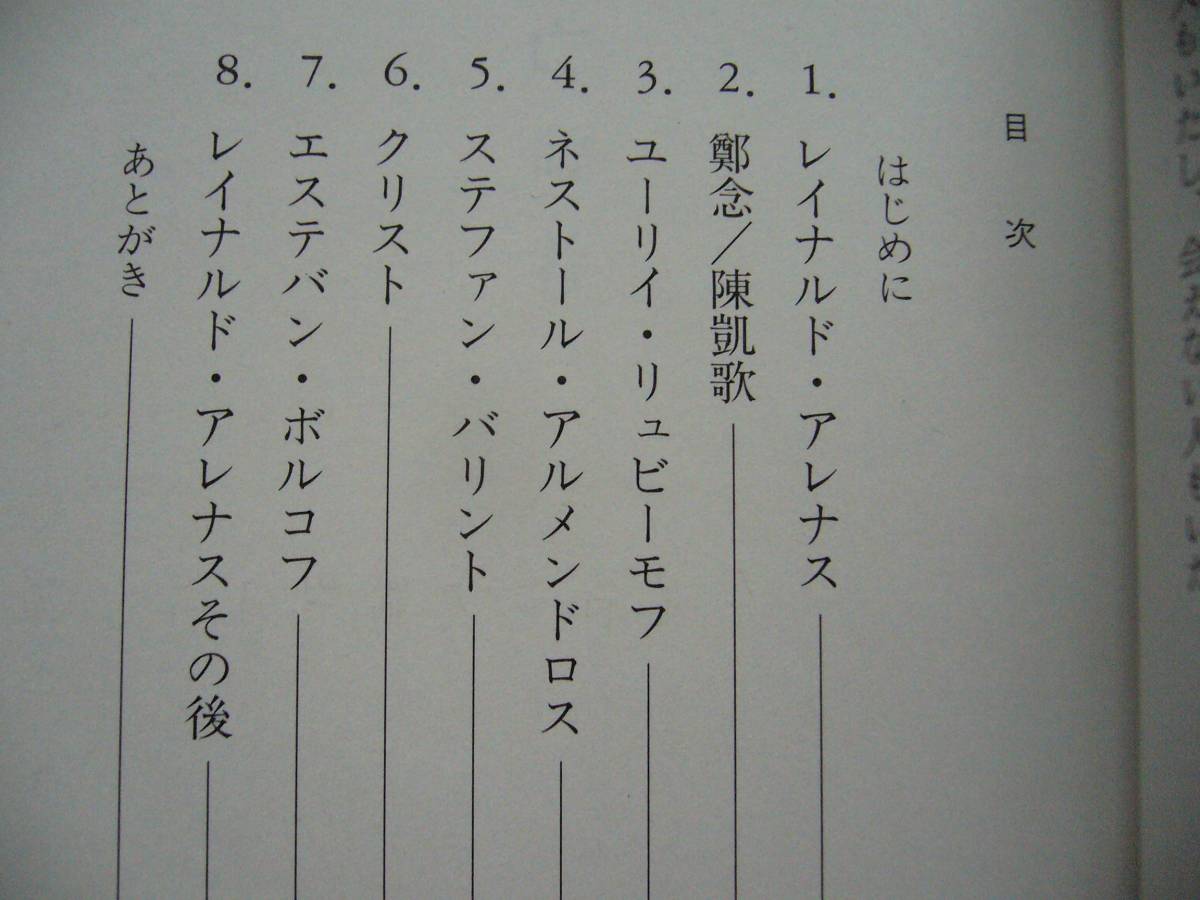 目次
はじめに
1. レイナルド・アレナス
2. 鄭念／陳凱歌
3. ユーリイ・リュビーモフ
4. ネストール・アルメンドロス
5. ステファン・バリント
6. クリスト
7. エステバン・ボルコフ
8. レイナルド・アレナスその後
あとがき